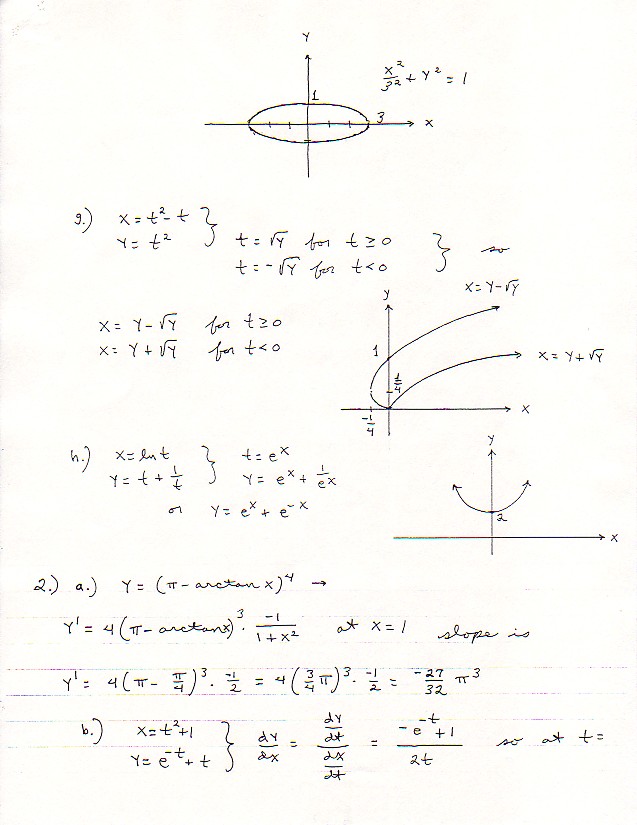 Y
x²/3² + Y² = 1
1
3
X
g.) X = t² - t
Y = t² } t = √Y for t ≥ 0
t = -√Y for t < 0 } so
X = Y - √Y
y
X = Y - √Y for t ≥ 0
X = Y + √Y for t < 0
1
X = Y + √Y
1/4
X
-1/4
h.) X = ln t } t = e^x
Y = t + 1/t } Y = e^x + 1/e^x
or Y = e^x + e^-x
y
2
X
2.) a.) Y = (π - arctan x)⁴ →
Y' = 4(π - arctan x)³ · -1/(1 + x²) at x = 1 slope is
Y' = 4(π - π/4)³ · -1/2 = 4(3/4 π)³ · -1/2 = -27/32 π³
b.) X = t² + 1
Y = e^-t + t } dY/dx = (dY/dt)/(dX/dt) = (-e^-t + 1)/2t so at t =